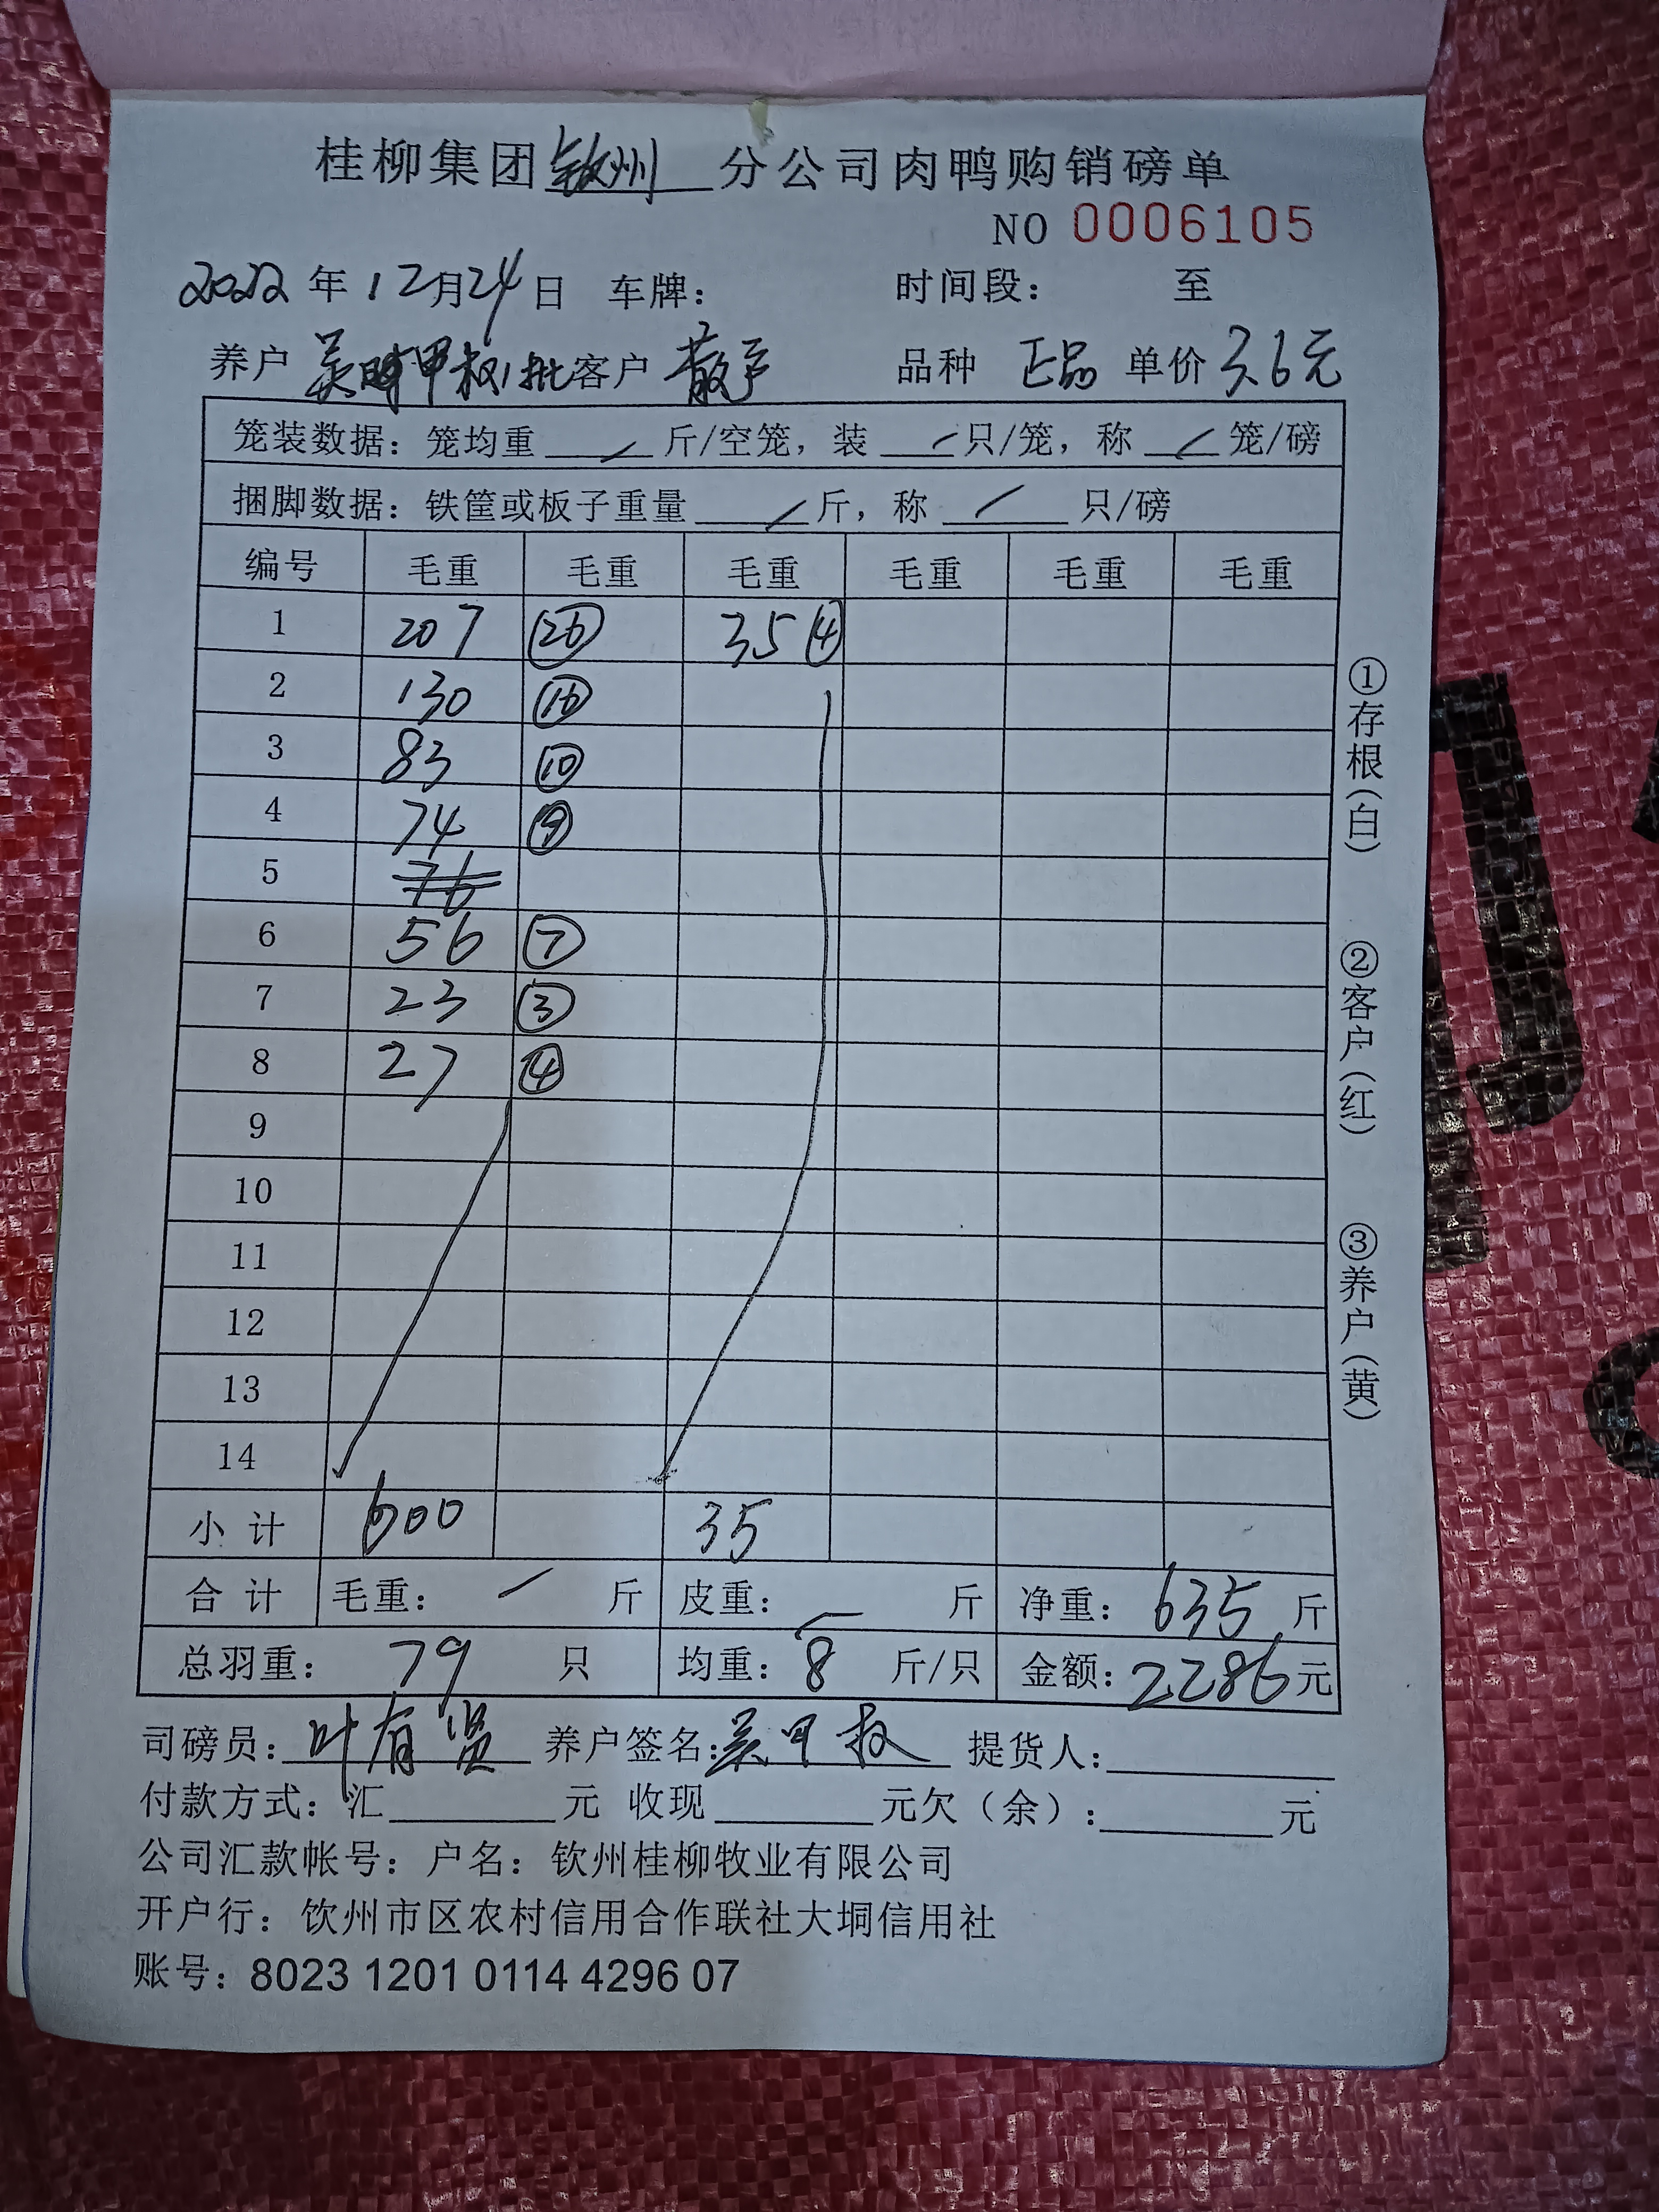 桂柳集团钦州分公司肉鸭购销磅单
NO 0006105
2022年12月24日 车牌： 时间段： 至
养户 吴 甲权1批 客户 散户 品种 正品 单价 3.6元
笼装数据：笼均重 / 斤/空笼，装 / 只/笼，称 / 笼/磅
捆脚数据：铁筐或板子重量 / 斤，称 / 只/磅
编号 毛重 毛重 毛重 毛重 毛重 毛重
1 207 ㉖ 35 ④
2 130 ⑯
3 83 ⑩
4 74 ⑨
5 76
6 56 ⑦
7 23 ③
8 27 ④
9
10
11
12
13
14
小计 600 35
合计 毛重： / 斤 皮重： / 斤 净重：635斤
总羽重：79只 均重：8斤/只 金额：2286元
司磅员：叶有贤 养户签名：吴甲权 提货人：
付款方式：汇 元 收现 元欠（余）： 元
公司汇款帐号：户名：钦州桂柳牧业有限公司
开户行：钦州市区农村信用合作联社大垌信用社
账号：8023 1201 0114 4296 07
①存根（白）
②客户（红）
③养户（黄）